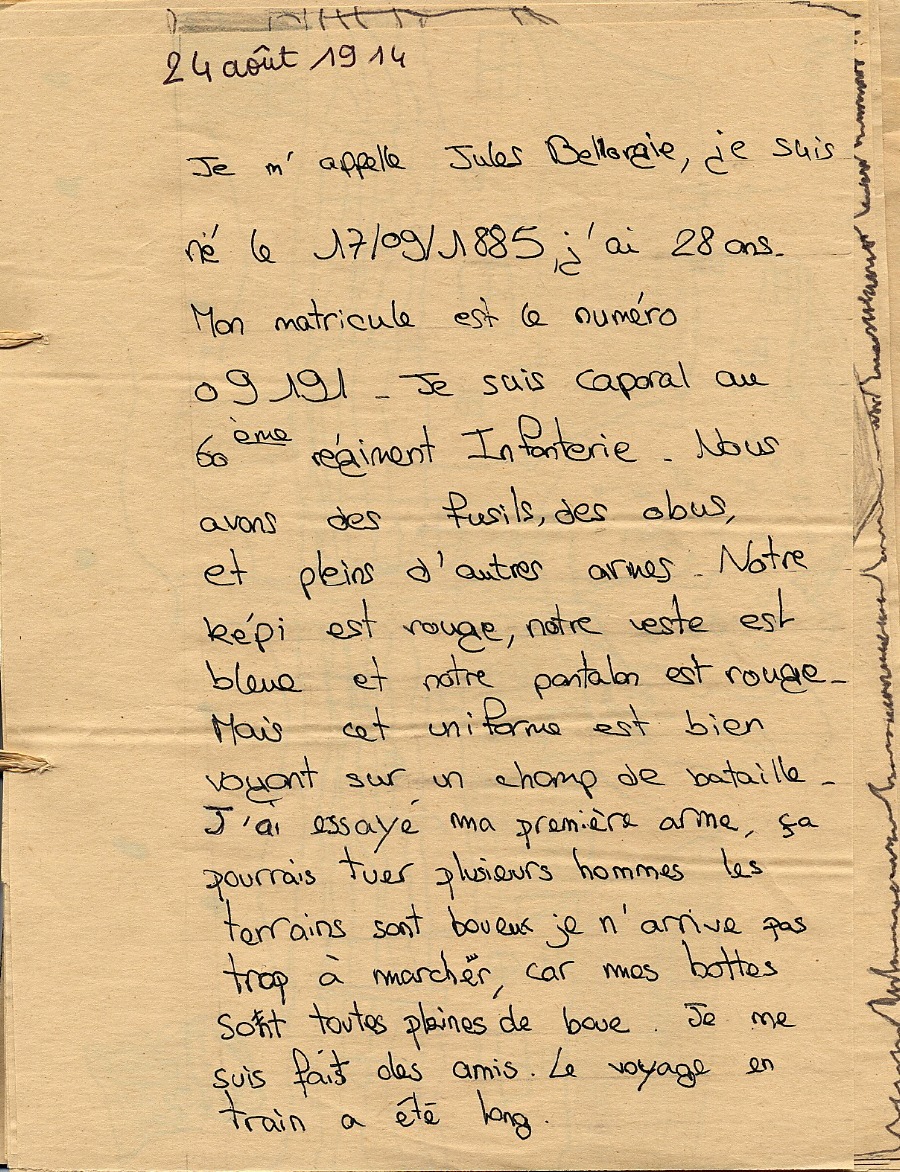 24 août 1914
Je m'appelle Jules Bellorgie, je suis
né le 17/09/1885, j'ai 28 ans.
Mon matricule est le numéro
09191 - Je suis caporal au
60ème régiment Infanterie - Nous
avons des fusils, des obus,
et pleins d'autres armes. Notre
képi est rouge, notre veste est
bleue et notre pantalon est rouge -
Mais cet uniforme est bien
voyant sur un champ de bataille -
J'ai essayé ma première arme, ça
pourrais tuer plusieurs hommes les
terrains sont boueux je n'arrive pas
trop à marcher, car mes bottes
sont toutes pleines de boue. Je me
suis fait des amis. Le voyage en
train a été long.